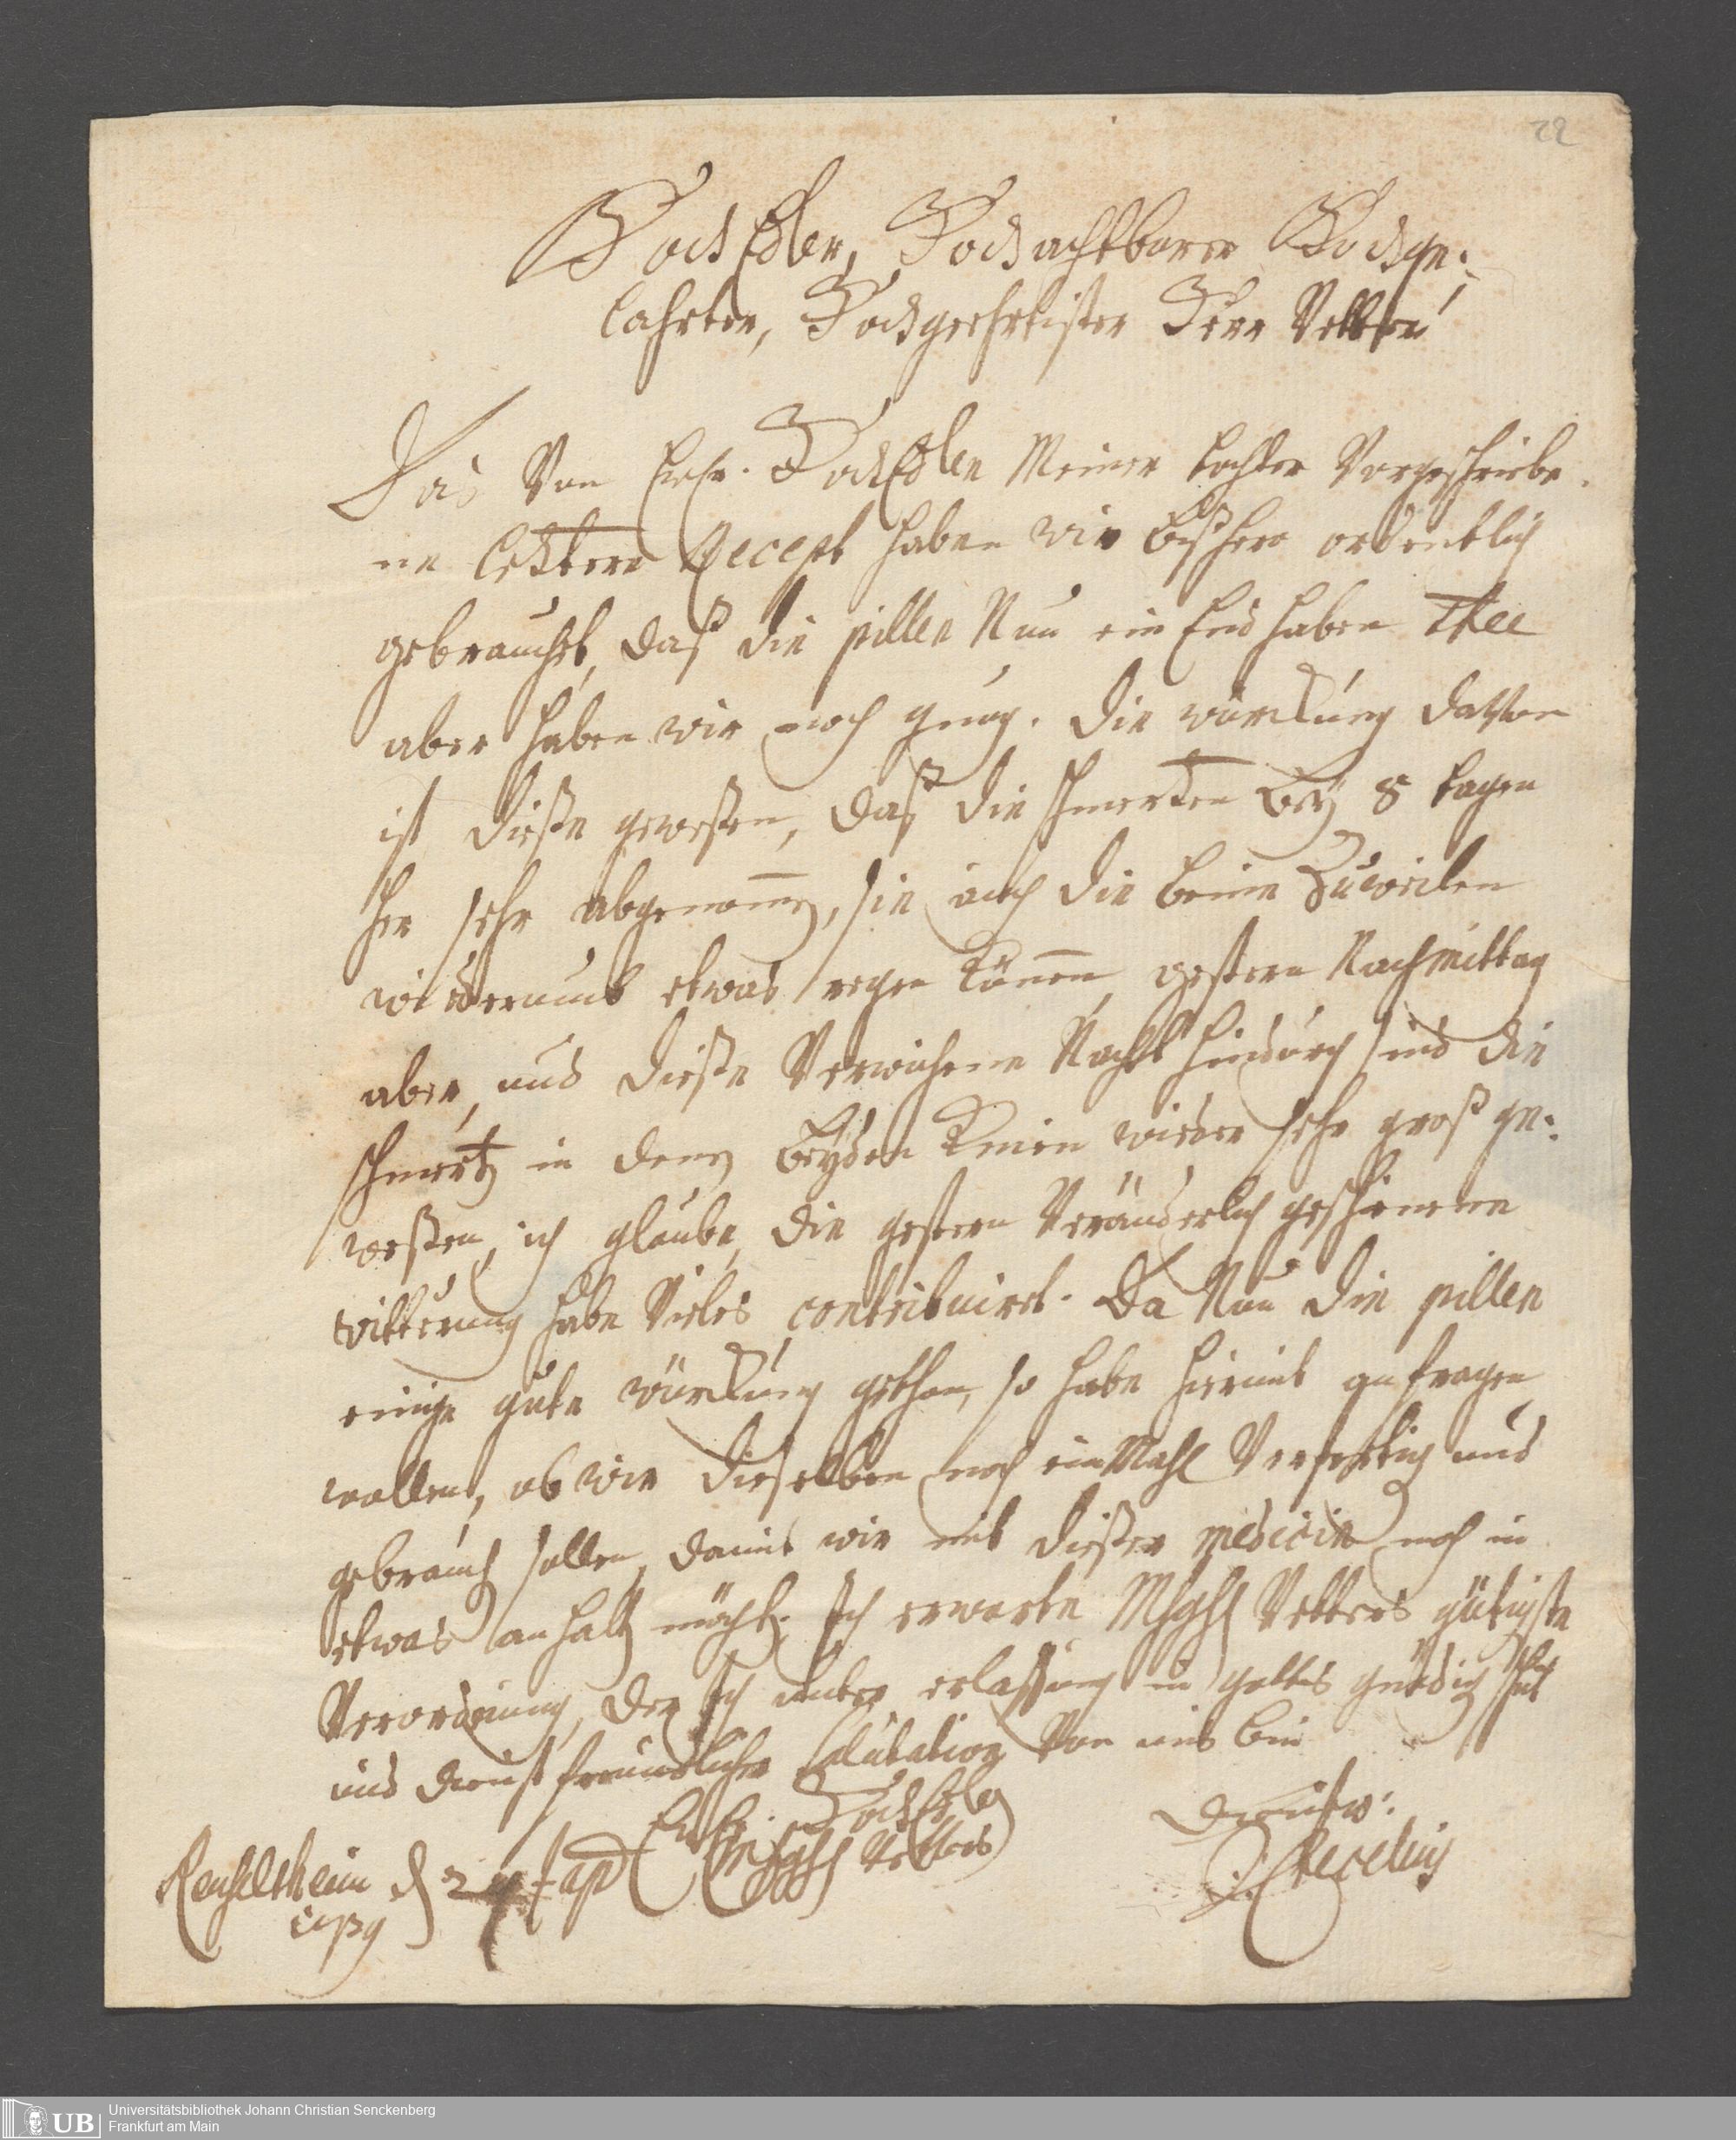 22
HochEdler, Hochachtbarer Hochge-
lahrter, Hochgeehrtister Herr Vetter!
Das Von Ewr. HochEdlen Meiner tochter Vorgeschriebe-
ne letztere Recept haben wir bißhero ordentlich
gebraucht, daß die pillen Nun ein End haben Thee
aber haben wir noch genug. Die würckung davon
ist dieße geweßen, daß die schmertzen bey 8 tagen
her sehr abgenommen, sie auch die beine Zuweilen
wiederumb etwas regen können, gestern Nachmittag
aber, und dieße Verwichene Nacht hindurch sind die
schmertzen in denen beyden Knien wieder sehr groß ge-
weßen, ich glaube, die gestern Veränderlich geschienene
witterung habe Vieles contribuiret. Da Nun die pillen
einige gute würckung gethan, so habe hiermit anfragen
wollen, ob wir dieselben noch ein Mahl Verfertigen und
gebrauchen sollen, damit wir mit dießer medicin noch in
etwas anhalten möchten. Ich erwarte MhghH Vetters gütigste
Verordnung, der Ich unter erlassung in gottes gnädigen schutz
und dienstfreundlicher Salutation Von uns bin
Ewr. HochEdlen
MhghH Vetters
dienstw:
Reichelsheim d 24 Sept
1739